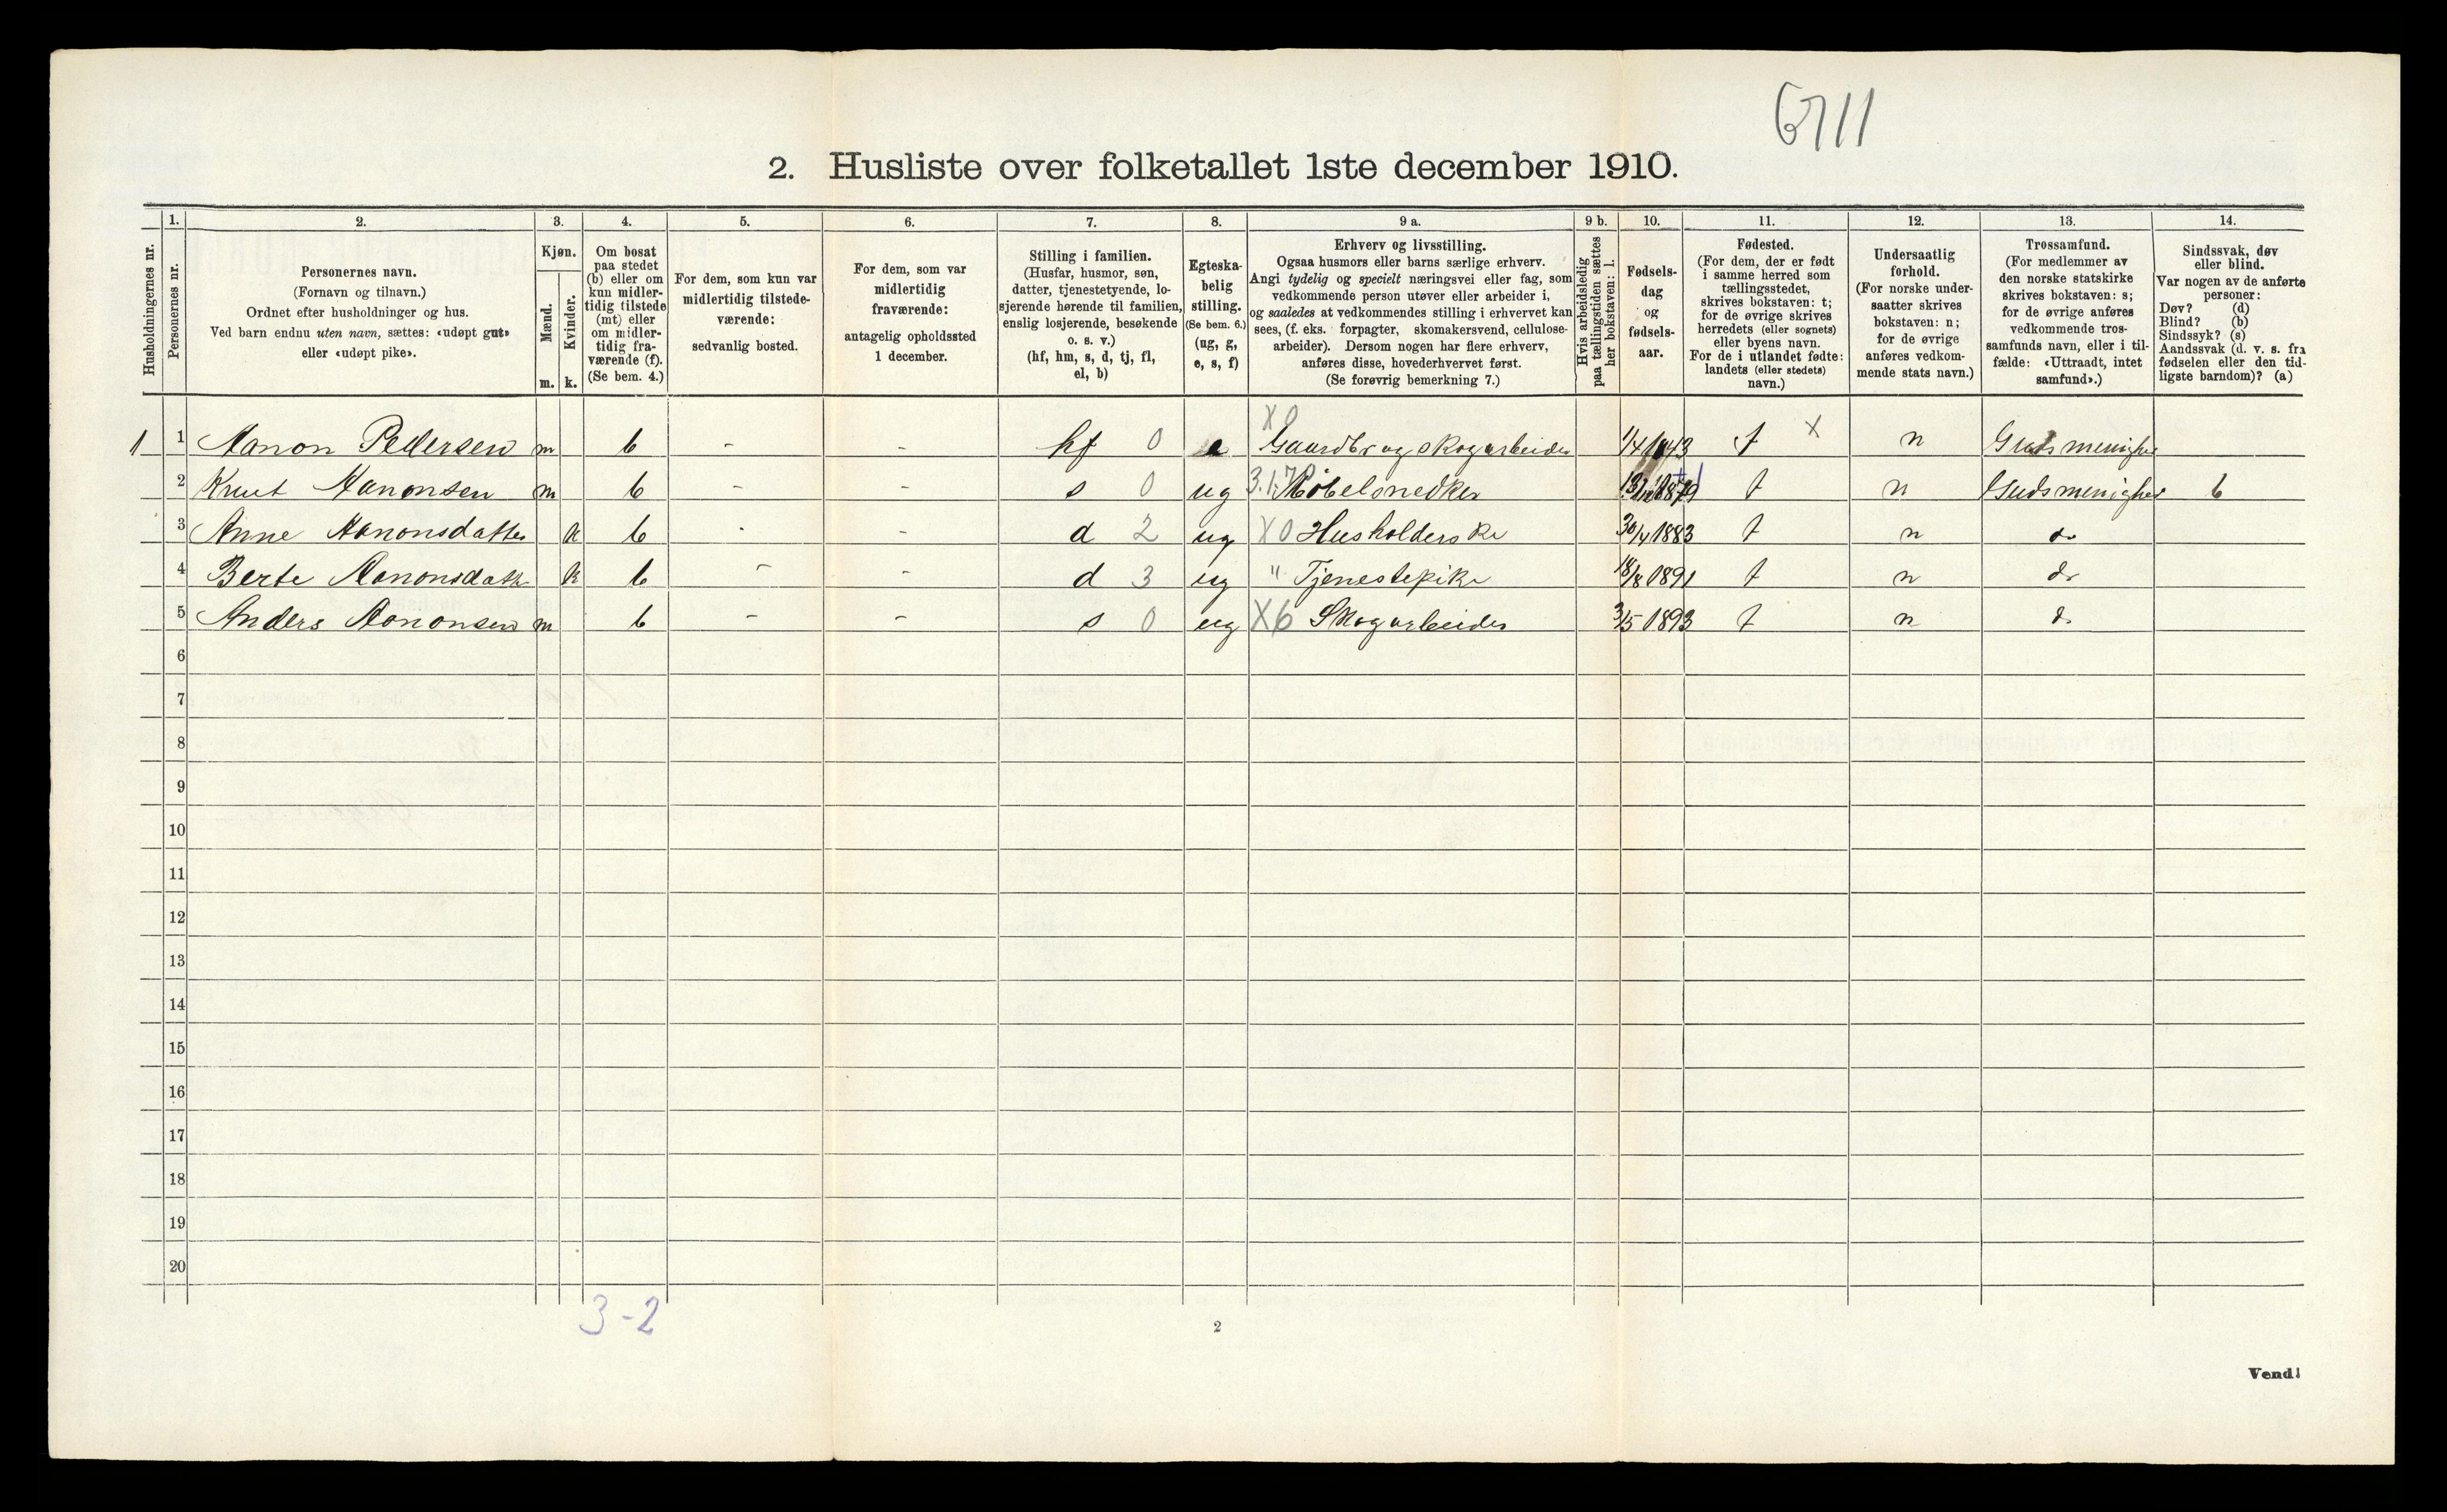 6711
2. Husliste over folketallet 1ste december 1910.
Husholdningernes nr.
1.
Personernes nr.
2.
Personernes navn.
(Fornavn og tilnavn.)
Ordnet efter husholdninger og hus.
Ved barn endnu uten navn, sættes: «udøpt gut»
eller «udøpt pike».
3.
Kjøn.
Mænd.
Kvinder.
m. k.
4.
Om bosat
paa stedet
(b) eller om
kun midler-
tidig tilstede
(mt) eller
om midler-
tidig fra-
værende (f).
(Se bem. 4.)
5.
For dem, som kun var
midlertidig tilstede-
værende:
sedvanlig bosted.
6.
For dem, som var
midlertidig
fraværende:
antagelig opholdssted
1 december.
7.
Stilling i familien.
(Husfar, husmor, søn,
datter, tjenestetyende, lo-
sjerende hørende til familien,
enslig losjerende, besøkende
o. s. v.)
(hf, hm, s, d, tj, fl,
el, b)
8.
Egteska-
belig
stilling.
(Se bem. 6.)
(ug, g,
e, s, f)
9 a.
Erhverv og livsstilling.
Ogsaa husmors eller barns særlige erhverv.
Angi tydelig og specielt næringsvei eller fag, som
vedkommende person utøver eller arbeider i,
og saaledes at vedkommendes stilling i erhvervet kan
sees, (f. eks. forpagter, skomakersvend, cellulose-
arbeider). Dersom nogen har flere erhverv,
anføres disse, hovederhvervet først.
(Se forøvrig bemerkning 7.)
9 b.
Hvis arbeidsledig
paa tællingstiden sættes
her bokstaven: l.
10.
Fødsels-
dag
og
fødsels-
aar.
11.
Fødested.
(For dem, der er født
i samme herred som
tællingsstedet,
skrives bokstaven: t;
for de øvrige skrives
herredets (eller sognets)
eller byens navn.
For de i utlandet fødte:
landets (eller stedets)
navn.)
12.
Undersaatlig
forhold.
(For norske under-
saatter skrives
bokstaven: n;
for de øvrige
anføres vedkom-
mende stats navn.)
13.
Trossamfund.
(For medlemmer av
den norske statskirke
skrives bokstaven: s;
for de øvrige anføres
vedkommende tros-
samfunds navn, eller i til-
fælde: «Uttraadt, intet
samfund».)
14.
Sindssvak, døv
eller blind.
Var nogen av de anførte
personer:
Døv? (d)
Blind? (b)
Sindssyk? (s)
Aandssvak (d. v. s. fra
fødselen eller den tid-
ligste barndom)? (a)
X 0
1 1 Aanon Pedersen m b - - hf 0 e Gaardbr og skogarbeider 1/4 1843 t X n Guds menighet
2 Knut Aanonsen m b - - s 0 ug Møbelsnedker t n Gudsmenighet b
3 Anne Aanonsdatter k b - - d 2 ug X 0 Husholderske 30/4 1883 t n do
4 Berte Aanonsdatr k b - - d 3 ug " Tjenestepike 18/8 1891 t n do
5 Anders Aanonsen m b - - s 0 ug X6 Skogarbeider 3/5 1893 t n do
6
7
8
9
10
11
12
13
14
15
16
17
18
19
20
3-2
2
Vend!